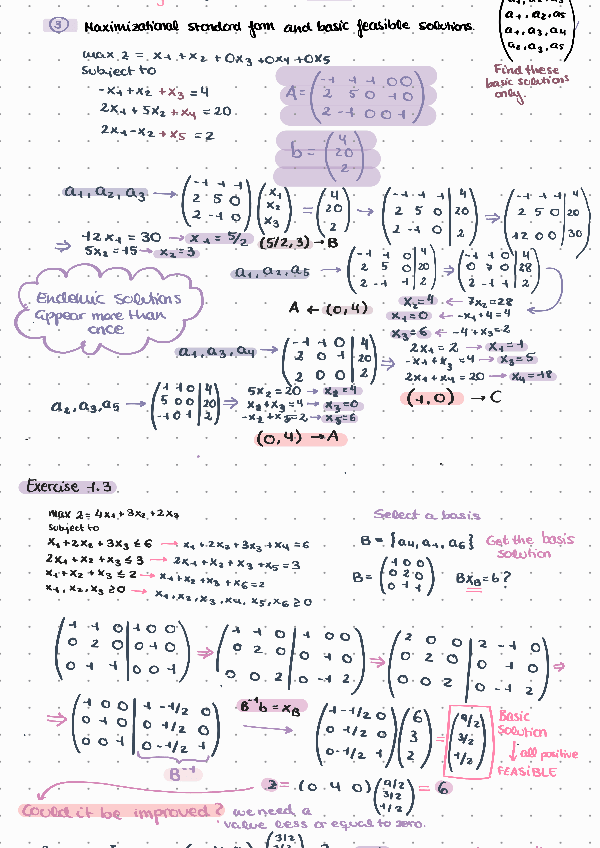 a₁, a₂, a₅
a₁, a₃, a₄
a₂, a₃, a₅
Find these
basic solutions
only.
③ Maximizational standard form and basic feasible solutions.
max z = x₁ + x₂ + 0x₃ + 0x₄ + 0x₅
Subject to
-x₁+x₂ +x₃ = 4
2x₁ + 5x₂ + x₄ = 20.
2x₁ - x₂ + x₅ = 2
A = ( -1 1 1 0 0
2 5 0 1 0
2 -1 0 0 1 )
b = ( 4
20
2 )
a₁, a₂, a₃ → ( -1 1 1
2 5 0
2 -1 0 ) ( x₁
x₂
x₃ ) = ( 4
20
2 ) → ( -1 1 1 | 4
2 5 0 | 20
2 -1 0 | 2 ) ⇒ ( -1 1 1 | 4
2 5 0 | 20
12 0 0 | 30 )
⇒ 12x₁ = 30 → x₁ = 5/2 (5/2, 3) → B
5x₂ = 15 → x₂ = 3
a₁, a₂, a₅ → ( -1 1 0 | 4
2 5 0 | 20
2 -1 1 | 2 ) ⇒ ( -1 1 0 | 4
0 7 0 | 28
2 -1 1 | 2 )
A ← (0, 4)
x₂=4 ← 7x₂=28
x₁=0 ← -x₁+4=4
x₃=6 ← -4+x₃=2
Endemic solutions
appear more than
once
a₁, a₃, a₄ → ( -1 1 0 | 4
2 0 1 | 20
2 0 0 | 2 ) ⇒
2x₁ = 2 → x₁=1
-x₁+x₃ = 4 → x₃=5
2x₁+x₄ = 20 → x₄=18
(1, 0) → C
a₂, a₃, a₅ → ( 1 1 0 | 4
5 0 0 | 20
-1 0 1 | 2 ) ⇒
5x₂ = 20 → x₂=4
x₂+x₃=4 → x₃=0
-x₂+x₅=2 → x₅=6
(0, 4) → A
Exercise 1.3
max z = 4x₁ + 3x₂ + 2x₃
Subject to
x₁ + 2x₂ + 3x₃ ≤ 6 → x₁ + 2x₂ + 3x₃ + x₄ = 6
2x₁ + x₂ + x₃ ≤ 3 → 2x₁ + x₂ + x₃ + x₅ = 3
x₁ + x₂ + x₃ ≤ 2 → x₁+x₂+x₃+x₆=2
x₁, x₂, x₃ ≥0 → x₁, x₂, x₃, x₄, x₅, x₆ ≥ 0
Select a basis
B = {a₄, a₁, a₆} Get the basis
solution
B = ( 1 0 0
0 2 0
0 1 1 ) Bx_B = b ?
( 1 1 0 | 1 0 0
0 2 0 | 0 1 0
0 1 1 | 0 0 1 ) ⇒ ( 1 1 0 | 1 0 0
0 2 0 | 0 1 0
0 0 2 | 0 -1 2 ) ⇒ ( 2 0 0 | 2 -1 0
0 2 0 | 0 1 0
0 0 2 | 0 -1 2 ) ⇒
⇒ ( 1 0 0 | 1 -1/2 0
0 1 0 | 0 1/2 0
0 0 1 | 0 -1/2 1 )
B⁻¹
B⁻¹b = x_B
→
( 1 -1/2 0
0 1/2 0
0 -1/2 1 ) ( 6
3
2 ) = ( 9/2
3/2
1/2 )
Basic
Solution
↓ all positive
FEASIBLE
z = (0 4 0) ( 9/2
3/2
1/2 ) = 6
Could it be improved? we need a
value less or equal to zero.